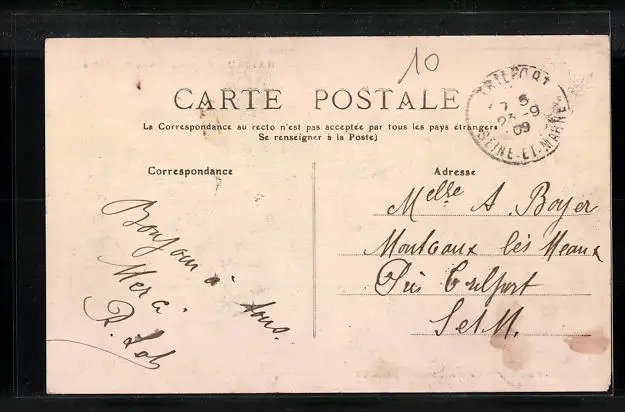 10
TRILPORT
7 5
23 -9
09
SEINE-ET-MARNE
CARTE POSTALE
La Correspondance au recto n'est pas acceptée par tous les pays étrangers
Se renseigner à la Poste)
Correspondance
Adresse
Bonjour à tous.
Merci
Melle A. Boyer
Montceaux lès Meaux
Près Trilport
S et M.